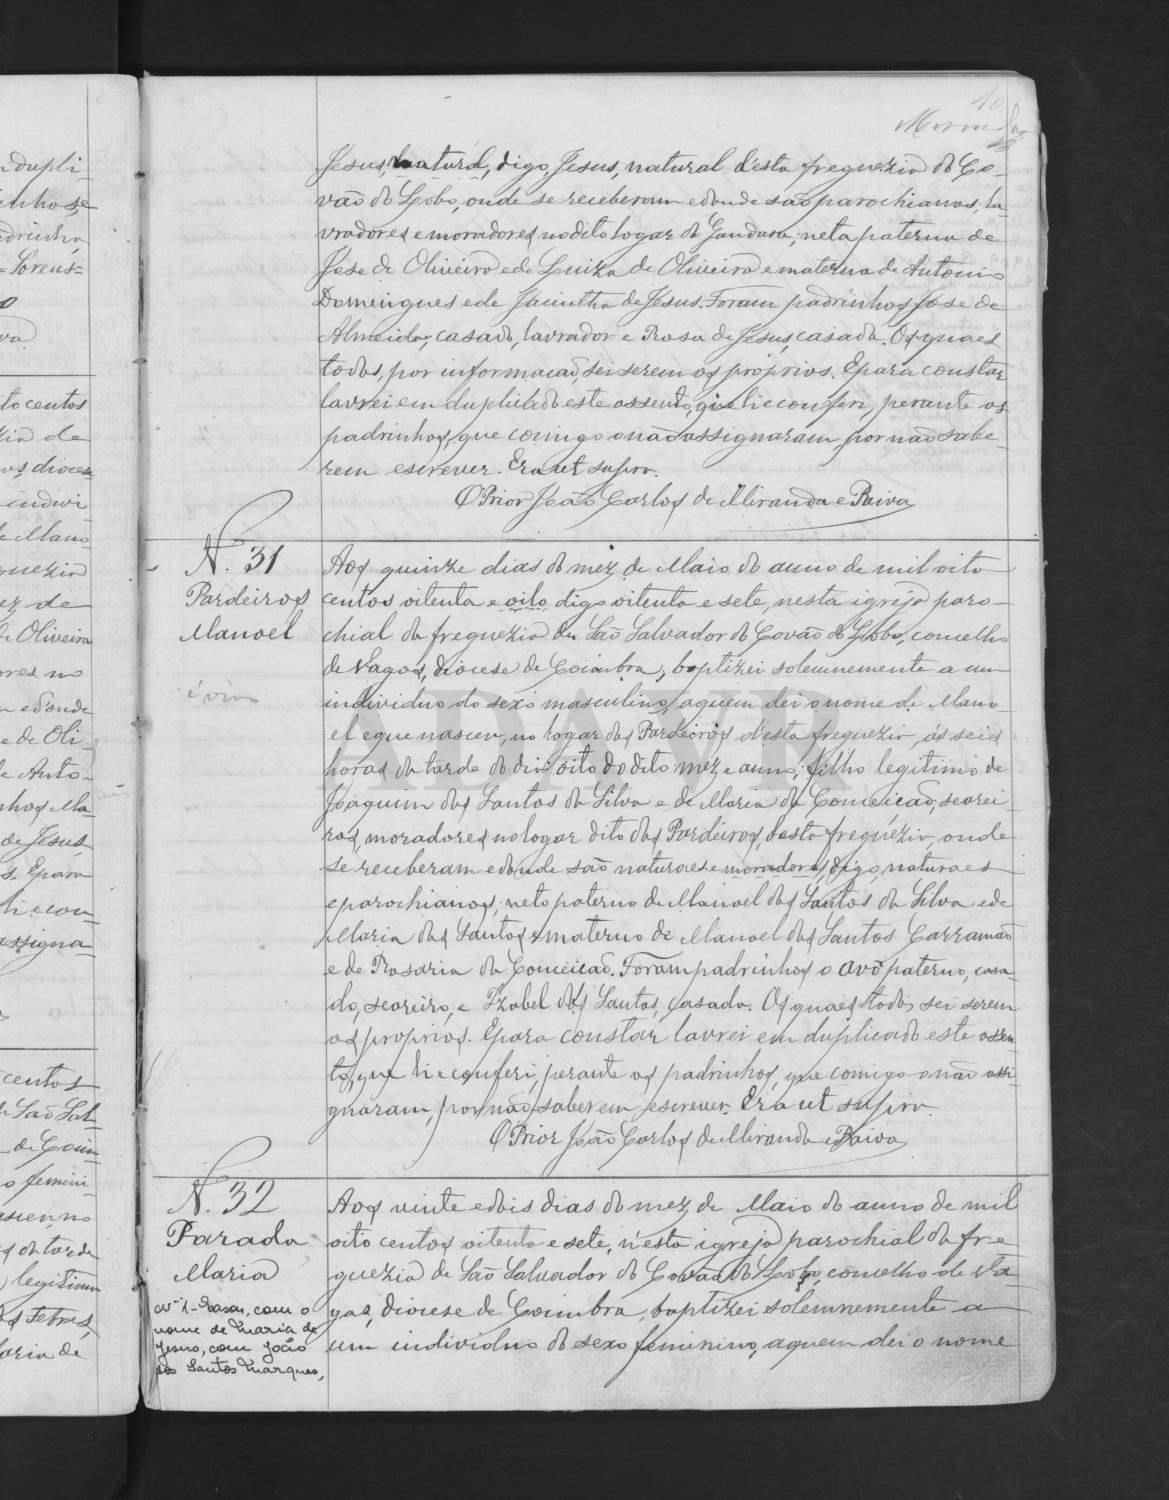 10
Miranda
Jesus, natural, digo, Jesus, natural d'esta freguezia do Co-
vão do Lobo, onde se receberam e d'onde são parochianos, la-
vradores e moradores no dito logar da Gandara; neta paterna de
José de Oliveira e de Luiza de Oliveira e materna de Antonio
Domingues e de Jacintha de Jesus. Foram padrinhos José de
Almeida, casado, lavrador e Rosa de Jesus, casada. Os quaes
todos, por informação, sei serem os proprios. E para constar
lavrei em duplicado este assento, que li e conferi, perante os
padrinhos, que comigo o não assignaram, por não sabe-
rem escrever. Era ut supra.
O Prior João Carlos de Miranda e Paiva
N. 31
Pardeiros
Manoel
Aos quinze dias do mez de Maio do anno de mil oito
centos oitenta e oito, digo oitenta e sete, n'esta igreja paro-
chial da freguezia de São Salvador do Covão do Lobo, concelho
de Vagos, diocese de Coimbra, baptizei solemnemente a um
individuo do sexo masculino, a quem dei o nome de Mano-
el, e que nasceu, no logar dos Pardeiros d'esta freguezia, ás seis
horas da tarde do dia oito do dito mez e anno; filho legitimo de
Joaquim dos Santos da Silva e de Maria da Conceicão, searei-
ros, moradores no logar dito dos Pardeiros, d'esta freguezia, onde
se receberam e d'onde são naturaes e moradores, digo, naturaes
e parochianos; neto paterno de Manoel dos Santos da Silva e de
Maria dos Santos e materno de Manoel dos Santos Carramão
e de Rosaria da Conceicão. Foram padrinhos o avô paterno, casa-
do, seareiro, e Izabel dos Santos, casada. Os quaes todos sei serem
os proprios. E para constar lavrei em duplicado este assen-
to, que li e conferi, perante os padrinhos, que comigo o não assi-
gnaram, por não saberem escrever. Era ut supra.
O Prior João Carlos de Miranda e Paiva
N. 32
Parada
Maria
Av. 1 - Casou, com o
nome de Maria de
Jesus, com João
dos Santos Marques,
Aos vinte e dois dias do mez de Maio do anno de mil
oito centos oitenta e sete, n'esta igreja parochial da fre-
guezia de São Salvador do Covão do Lobo, concelho de Va-
gos, diocese de Coimbra, baptizei solemnemente a
um individuo do sexo feminino, a quem dei o nome
ADAVR